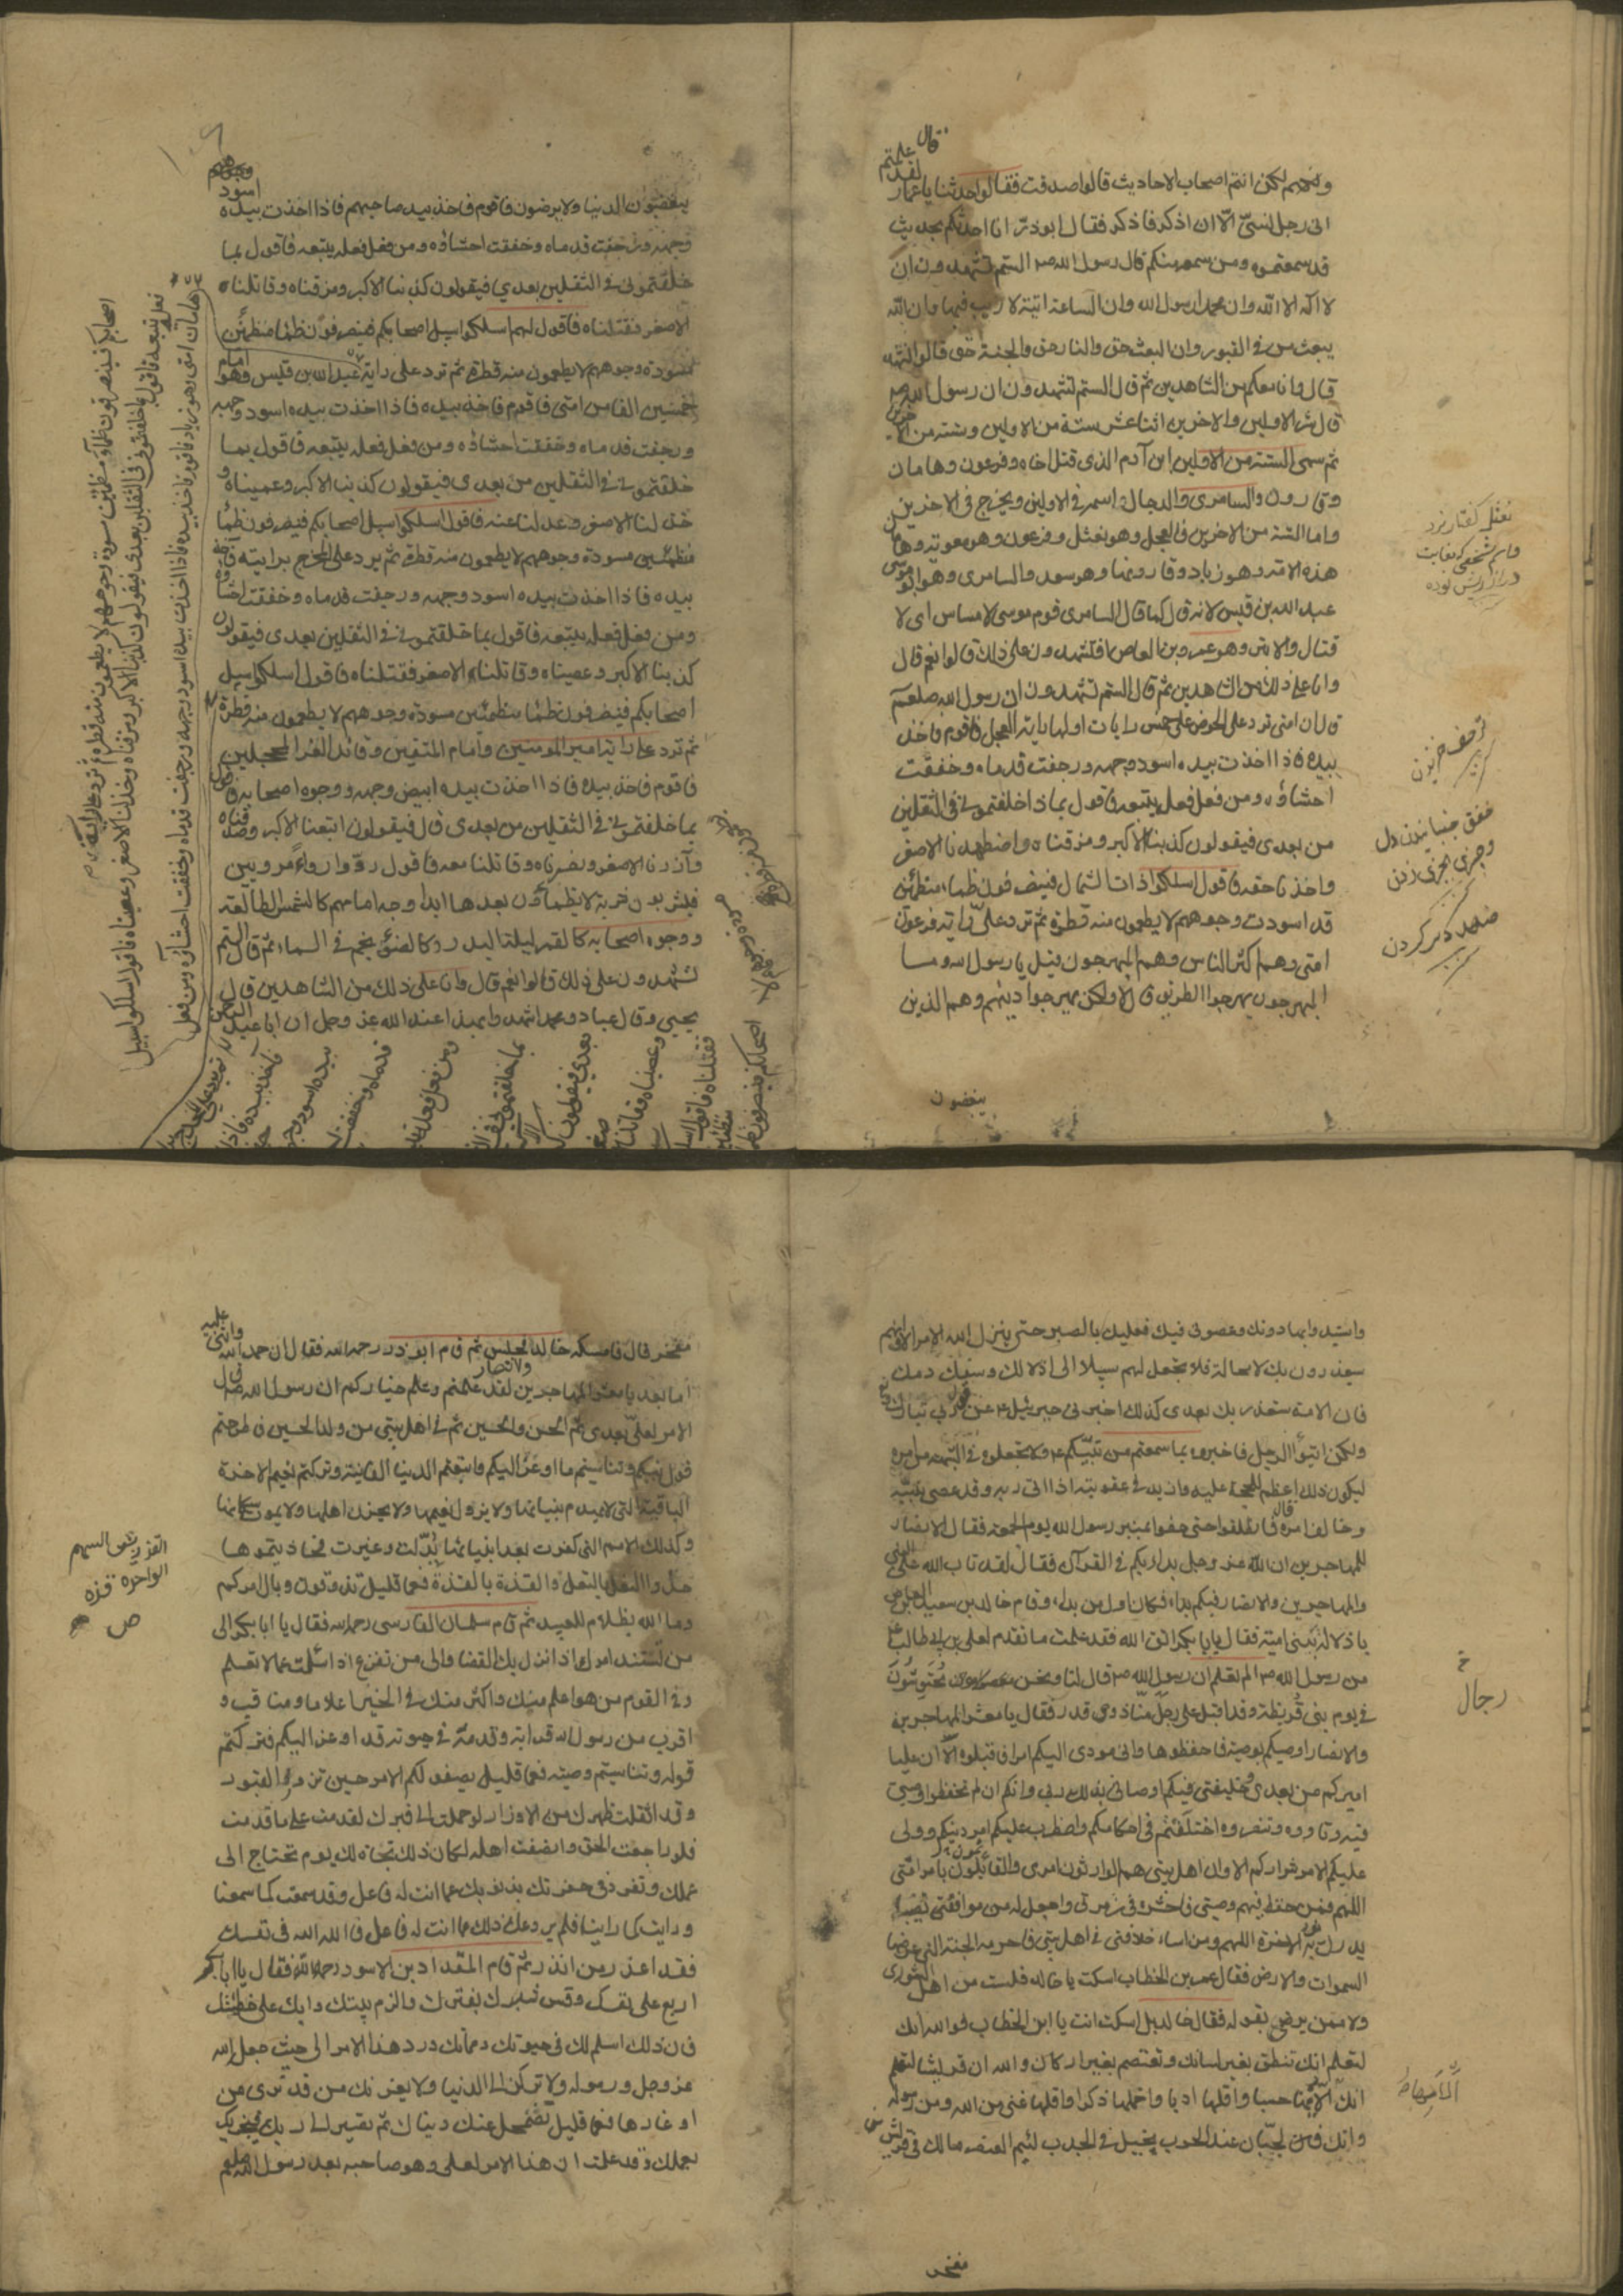 ولكنهم لكن انتم اصحاب الاحاديث قالوا صدقت فقالوا حدثنا يا عمار قال لقد علمتم
انى رجل نسىّ الّا ان اذكر فاذكر فقال ابوذر انا احدثكم بحديث
قد سمعتموه ومن سمعه منكم قال رسول الله ص الستم تشهدون ان
لا اله الا الله وان محمدا رسول الله وان الساعة اتية لا ريب فيها وان الله
يبعث من فى القبور وان البعث حق والنار حق والجنة حق قالوا نشهد
قال وانا معكم من الشاهدين ثم قال الستم تشهدون ان رسول الله ص
قال شر الاولين والاخرين اثنا عشر ستة من الاولين وستة من الاخرين
ثم سمى الستة من الاولين ابن آدم الذى قتل اخاه وفرعون وهامان
وقارون والسامرى والدجال اسمه فى الاولين ويخرج فى الاخرين
واما الستة من الاخرين فالعجل وهو نعثل وفرعون وهو معوية وهامان
هذه الامة وهو زياد وقارونها وهو سعد والسامرى وهو ابو موسى
عبد الله بن قيس لانه قال كما قال السامرى قوم موسى لا مساس اى لا
قتال والابتر وهو عمرو بن العاص افتشهدون على ذلك قالوا نعم قال
وانا على ذلك من الشاهدين ثم قال الستم تشهدون ان رسول الله صلعم
قال ان امتى ترد على الحوض على خمس رايات اولها راية العجل فاقوم فاخذ
بيده فاذا اخذت بيده اسود وجهه ورجفت قدماه وخفقت
احشاؤه ومن فعل فعله يتبعه فاقول بماذا خلفتمونى فى الثقلين
من بعدى فيقولون كذبنا الاكبر ومزقناه واضطهدنا الاصغر
واخذنا حقه فاقول اسلكوا ذات الشمال فينصرفون ظماء مظمئين
قد اسودت وجوههم لا يطعمون منه قطرة ثم ترد علىّ راية فرعون
امتى وهم اكثر الناس وهم المبهرجون قيل يا رسول الله وما
المبهرجون بهرجوا الطريق قال لا ولكن بهرجوا دينهم وهم الذين
يغضبون
نعثل كفتار نرد
رجف لرزيدن
خفق جنبانيدن دل
وچيزى بچيزى زدن
يغضبون للدنيا ولا يرضون فاقوم فاخذ بيد صاحبهم فاذا اخذت بيده اسود
وجهه ورجفت قدماه وخفقت احشاؤه ومن فعل فعله يتبعه فاقول بما
خلفتمونى فى الثقلين بعدى فيقولون كذبنا الاكبر ومزقناه وقاتلناه
الاصغر فقتلناه فاقول لهم اسلكوا سبيل اصحابكم فينصرفون ظما مظمئين
مسودة وجوههم لا يطعمون منه قطرة ثم ترد على راية عبد الله بن قيس وهو امام
خمسين الفا من امتى فاقوم فاخذ بيده فاذا اخذت بيده اسود وجهه
ورجفت قدماه وخفقت احشاؤه ومن فعل فعله يتبعه فاقول بما
خلفتمونى فى الثقلين من بعدى فيقولون كذبنا الاكبر وعصيناه و
خذلنا الاصغر وعدلنا عنه فاقول اسلكوا سبيل اصحابكم فينصرفون ظما
مظمئين مسودة وجوههم لا يطعمون منه قطرة ثم يرد على المخدج برايته فاخذ
بيده فاذا اخذت بيده اسود وجهه ورجفت قدماه وخفقت احشاؤه
ومن فعل فعله يتبعه فاقول بما خلفتمونى فى الثقلين بعدى فيقولون
كذبنا الاكبر وعصيناه وقاتلنا الاصغر فقتلناه فاقول اسلكوا سبيل
اصحابكم فينصرفون ظما مظمئين مسودة وجوههم لا يطعمون منه قطرة
ثم ترد على راية امير المؤمنين وامام المتقين وقائد الغر المحجلين
فاقوم فاخذ بيده فاذا اخذت بيده ابيض وجهه ووجوه اصحابه فاقول
بما خلفتمونى فى الثقلين من بعدى قال فيقولون اتبعنا الاكبر وصدقناه
وآزرنا الاصغر ونصرناه وقاتلنا معه فاقول ردوا رواء مرويين
فيشربون شربة لا يظمأون بعدها ابدا وجه امامهم كالشمس الطالعة
ووجوه اصحابه كالقمر ليلة البدر وكاضوئ نجم فى السماء ثم قال الستم
تشهدون على ذلك قالوا نعم قال وانا على ذلك من الشاهدين قال
يحيى وقال عباد ومحمد اشهد وا بهذا عند الله عز وجل ان ابا عبد الرحمن
هامان امتى وهو زياد فاقوم فاخذ بيده فاذا اخذت بيده اسود وجهه ورجفت قدماه وخفقت احشاؤه ومن فعل
فعله يتبعه فاقول بما خلفتمونى فى الثقلين بعدى فيقولون كذبنا الاكبر ومزقناه وخذلنا الاصغر وعصيناه فاقول اسلكوا سبيل
اصحابكم فينصرفون ظماء مظمئين مسودة وجوههم لا يطعمون منه قطرة ثم ترد على راية
فاخذ بيده فاذا
بيده اسود وجهه
قدماه وخفقت
ومن فعل فعله
بما خلفتمونى فى
بعدى فيقولون
وعصيناه وقاتلنا
فقتلناه فاقول
اصحابكم فينصرفون
واستبدوا بها دونك وعصونى فيك فعليك بالصبر حتى ينزل الله الامر الا وانهم
سيغدرون بك لا محالة فلا تجعل لهم سبيلا الى اذلالك وسفك دمك
فان الامة ستغدر بك بعدى كذلك اخبرنى جبرئيل ع عن ربى تبارك وتع
ولكن ايتوا الرجل فاخبروه بما سمعتم من نبيكم ع ولا تجعلوه فى الشبهة من امره
ليكون ذلك اعظم للحجة عليه وازيد فى عقوبته اذا اتى ربه وقد عصى نبيه
وخالف امره قال فانطلقوا حتى حفوا بمنبر رسول الله يوم الجمعة فقال الانصار
للمهاجرين ان الله عز وجل بدأ بكم فى القرآن فقال لقد تاب الله على النبى
والمهاجرين والانصار فبكم بدا، فكان اول من بدا، وقام خالد بن سعيد بن العاص
باذلاله ببنى امية فقال يا ابا بكر اتق الله فقد علمت ما تقدم لعلى بن ابى طالب ع
من رسول الله ص الم تعلم ان رسول الله ص قال لنا ونحن محتوشوه
فى يوم بنى قريظة وقد اقبل على رجال منا ذوى قدر فقال يا معشر المهاجرين
والانصار اوصيكم بوصية فاحفظوها وانى مودى اليكم امرا فاقبلوه الا ان عليا
اميركم من بعدى وخليفتى فيكم اوصانى بذلك ربى وانكم ان لم تحفظوا وصيتى
فيه وتاووه وتنصروه اختلفتم فى احكامكم واضطرب عليكم امر دينكم وولى
عليكم الامر شراركم الا وان اهل بيتى هم الوارثون امرى والقائمون بامر امتى
اللهم فمن حفظ فيهم وصيتى فاحشره فى زمرتى واجعل له من موافقتى نصيبا
يدرك به فوز الاخرة اللهم ومن اساء خلافتى فى اهل بيتى فاحرمه الجنة التى عرضها
السموات والارض فقال عمر بن الخطاب اسكت يا خالد فلست من اهل الشورى
ولا ممن يرضى بقوله فقال خالد بل اسكت انت يا ابن الخطاب فوالله انك
لتعلم انك تنطق بغير لسانك وتعتصم بغير اركانك والله ان قريشا لتعلم
انك الأمها حسبا واقلها ادبا واخملها ذكرا واقلها غنى من الله ومن رسوله
وانك لجبان عند الحرب بخيل فى الجدب لئيم العنصر ما لك فى قريش
مفخر
رجال
مفخر قال فاسكته خالد لمجلس ثم قام ابوذر رحمه الله فقال ان حمد الله واثنى عليه
اما بعد يا معشر المهاجرين والانصار لقد علمتم وعلم خياركم ان رسول الله ص قال
الامر لعلى بعدى ثم الحسن والحسين ثم فى اهل بيتى من ولد الحسين فاطرحتم
قول نبيكم وتناسيتم ما اوعز اليكم واتبعتم الدنيا الفانية وتركتم نعيم الاخرة
الباقية التى لا يهدم بنيانها ولا يزول نعيمها ولا يحزن اهلها ولا يموت سكانها
وكذلك الامم التى كفرت بعد انبيائها بدّلت وغيرت فحاذيتموها
حذو النعل بالنعل والقذة بالقذة فعما قليل تذوقون وبال امركم
وما الله بظلام للعبيد ثم قام سلمان الفارسى رحمه الله فقال يا ابا بكر الى
من تستند امرك اذا نزل بك القضا والى من تفزع اذا سئلت عما لا تعلم
وفى القوم من هو اعلم منك واكثر منك فى الخير اعلاما ومناقب و
اقرب من رسول الله قرابة وقدمة فى حيوته قد اوعز اليكم فتركتم
قوله وتناسيتم وصيته فعما قليل يصفو لكم الامر حين تزوروا القبور
وقد اثقلت ظهرك من الاوزار لو حملت الى قبرك لقدمت على ما قدمت
فلو راجعت الحق وانصفت اهله لكان ذلك نجاة لك يوم تحتاج الى
عملك وتفرد فى حفرتك بذنوبك عما انت له فاعل وقد سمعت كما سمعنا
ورايت كما راينا فلم يردعك ذلك عما انت له فاعل فالله الله فى نفسك
فقد اعذر من انذر ثم قام المقداد بن الاسود رحمة الله فقال يا ابا بكر
اربع على نفسك وقس شبرك بفترك والزم بيتك وابك على خطيئتك
فان ذلك اسلم لك فى حيوتك ومماتك ورد هذا الامر الى حيث جعل الله
عز وجل ورسوله ولا تركن الى الدنيا ولا يغرنك من قد ترى من
اوغادها فعما قليل يضمحل عنك دنياك ثم تصير الى ربك فيجزيك
بعملك وقد علمت ان هذا الامر لعلى وهو صاحبه بعد رسول الله صلعم
القذ ريش السهم
الواحدة قذة
ص